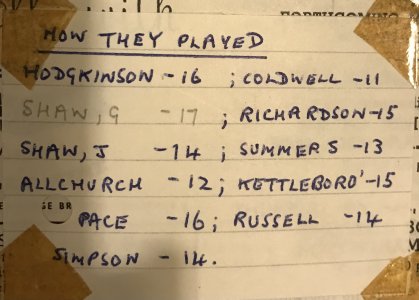 FORTHCOMING
HOW THEY PLAYED
HODGKINSON - 16 ; COLDWELL - 11
SHAW, G - 17 ; RICHARDSON - 15
SHAW, J - 14 ; SUMMERS - 13
ALLCHURCH - 12 ; KETTLEBORO' - 15
GE BR
PACE - 16 ; RUSSELL - 14
SIMPSON - 14.